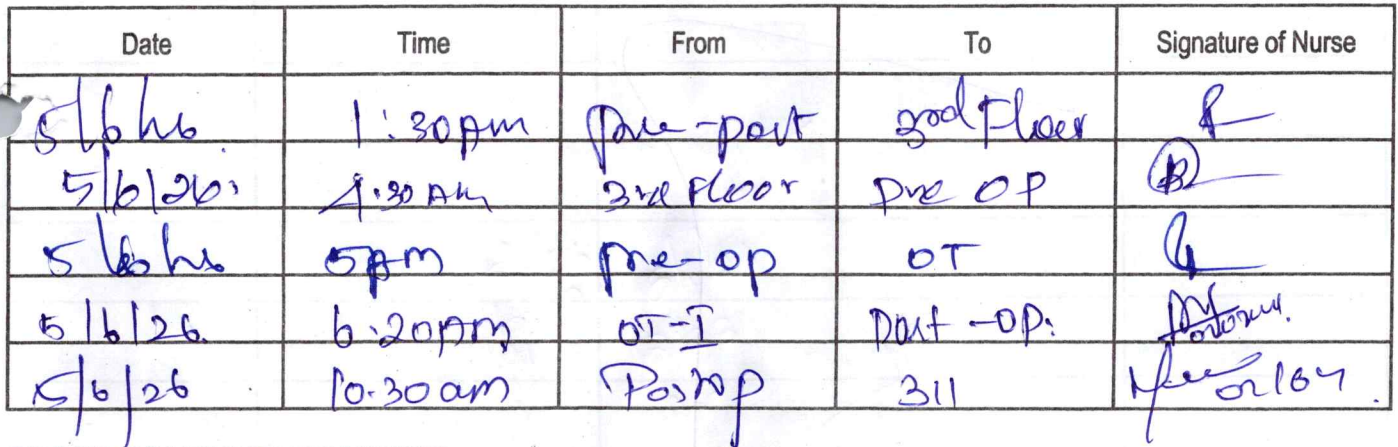 Date Time From To Signature of Nurse
5/6/26 1:30Am pre-post 3rd Floor
5/6/26. 4:30 AM 3rd Floor pre OP
5/6/26 5Am pre-op OT
5/6/26. 6:20Am OT-I Post-OP.
5/6/26 10.30am Postop 311